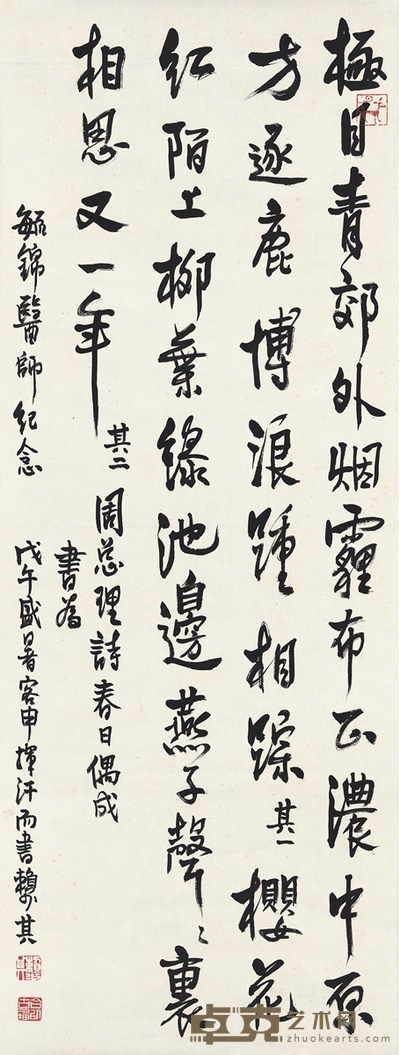 極目青郊外烟霾布正濃中原
方逐鹿博浪踵相蹤其一櫻花
紅陌上柳葉綠池邊燕子聲々裏
相思又一年其二周总理詩春日偶成
書為
毓錦醫師紀念
戊午盛暑客申揮汗而書賴少其
卓克艺术网
www.zhuokearts.com